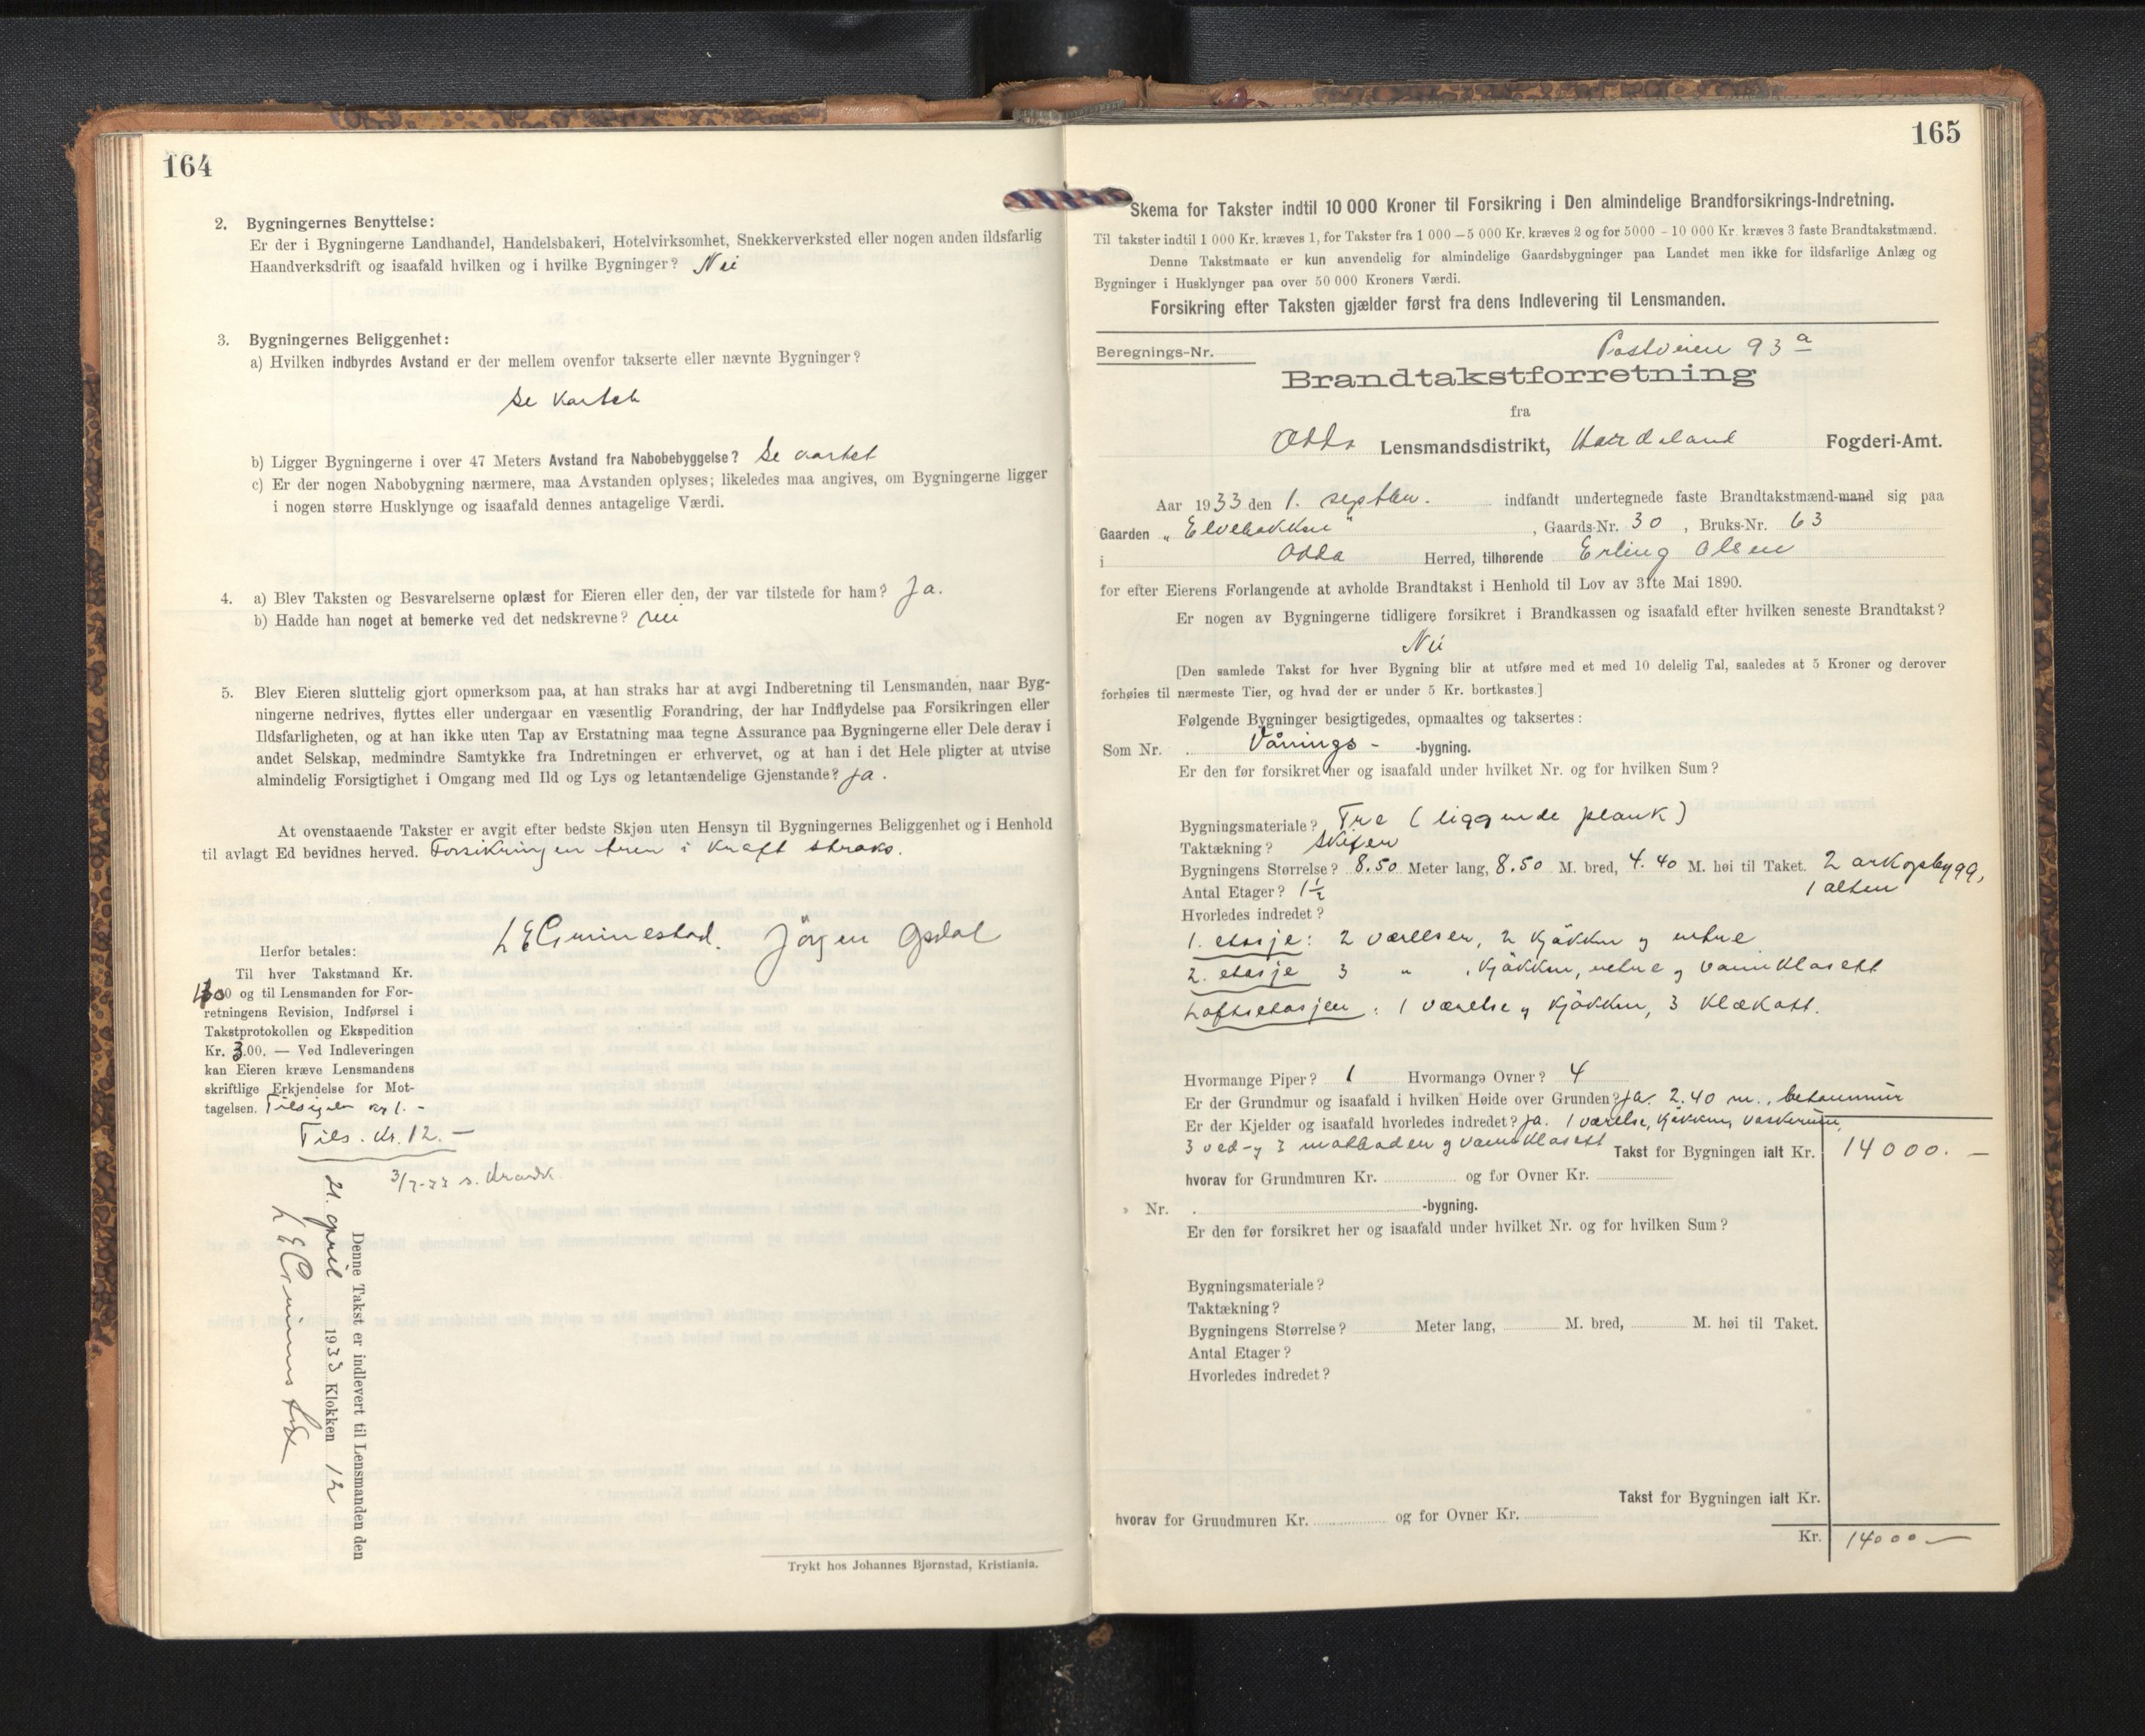 164
2. Bygningernes Benyttelse:
Er der i Bygningerne Landhandel, Handelsbakeri, Hotelvirksomhet, Snekkerverksted eller nogen anden ildsfarlig
Haandverksdrift og isaafald hvilken og i hvilke Bygninger? Nei
3. Bygningernes Beliggenhet:
a) Hvilken indbyrdes Avstand er der mellem ovenfor takserte eller nævnte Bygninger?
Se kartet
b) Ligger Bygningerne i over 47 Meters Avstand fra Nabobebyggelse? Se kartet
c) Er der nogen Nabobygning nærmere, maa Avstanden oplyses; likeledes maa angives, om Bygningerne ligger
i nogen større Husklynge og isaafald dennes antagelige Værdi.
4. a) Blev Taksten og Besvarelserne oplæst for Eieren eller den, der var tilstede for ham? Ja.
b) Hadde han noget at bemerke ved det nedskrevne? nei
5. Blev Eieren sluttelig gjort opmerksom paa, at han straks har at avgi Indberetning til Lensmanden, naar Byg-
ningerne nedrives, flyttes eller undergaar en væsentlig Forandring, der har Indflydelse paa Forsikringen eller
Ildsfarligheten, og at han ikke uten Tap av Erstatning maa tegne Assurance paa Bygningerne eller Dele derav i
andet Selskap, medmindre Samtykke fra Indretningen er erhvervet, og at han i det Hele pligter at utvise
almindelig Forsigtighet i Omgang med Ild og Lys og letantændelige Gjenstande? Ja.
At ovenstaaende Takster er avgit efter bedste Skjøn uten Hensyn til Bygningernes Beliggenhet og i Henhold
til avlagt Ed bevidnes herved. Forsikringen tren i kraft straks.
L E Grimestad. Jörgen Opdal
Herfor betales:
Til hver Takstmand Kr.
00 og til Lensmanden for For-
retningens Revision, Indførsel i
Takstprotokollen og Ekspedition
Kr. 3.00. — Ved Indleveringen
kan Eieren kræve Lensmandens
skriftlige Erkjendelse for Mot-
tagelsen. kr 1.-
Tils. kr. 12.—
Denne Takst er indlevert til Lensmanden den
21. april 1933 Klokken 12
L E Grimestad
Trykt hos Johannes Bjørnstad, Kristiania.
165
Skema for Takster indtil 10 000 Kroner til Forsikring i Den almindelige Brandforsikrings-Indretning.
Til takster indtil 1 000 Kr. kræves 1, for Takster fra 1 000 – 5 000 Kr. kræves 2 og for 5000 – 10 000 Kr. kræves 3 faste Brandtakstmænd.
Denne Takstmaate er kun anvendelig for almindelige Gaardsbygninger paa Landet men ikke for ildsfarlige Anlæg og
Bygninger i Husklynger paa over 50 000 Kroners Værdi.
Forsikring efter Taksten gjælder først fra dens Indlevering til Lensmanden.
Beregnings-Nr. Postveien 93 a
Brandtakstforretning
fra
Odda Lensmandsdistrikt, Hordaland Fogderi-Amt.
Aar 1933 den 1. septbr. indfandt undertegnede faste Brandtakstmænd-mand sig paa
Gaarden „Elvebakken", Gaards-Nr. 30, Bruks-Nr. 63
i Odda Herred, tilhørende Erling Olsen
for efter Eierens Forlangende at avholde Brandtakst i Henhold til Lov av 31te Mai 1890.
Er nogen av Bygningerne tidligere forsikret i Brandkassen og isaafald efter hvilken seneste Brandtakst?
Nei
[Den samlede Takst for hver Bygning blir at utføre med et med 10 delelig Tal, saaledes at 5 Kroner og derover
forhøies til nærmeste Tier, og hvad der er under 5 Kr. bortkastes.]
Følgende Bygninger besigtigedes, opmaaltes og taksertes:
Som Nr. Vånings- -bygning.
Er den før forsikret her og isaafald under hvilket Nr. og for hvilken Sum?
Bygningsmateriale? Tre (liggende plank)
Taktækning? skifer
Bygningens Størrelse? 8.50 Meter lang, 8.50 M. bred, 4.40 M. høi til Taket. 2 arkopbygg,
Antal Etager? 1½ 1 altan
Hvorledes indredet?
1. etasje: 2 værelser, 2 kjøkken og entre
2. etasje 3 " , kjøkken, entre og vannklosett
Loftsetasjen: 1 værelse og kjøkken, 3 klækott.
Hvormange Piper? 1 Hvormange Ovner? 4
Er der Grundmur og isaafald i hvilken Høide over Grunden? Ja. 2.40 m., betonmur
Er der Kjelder og isaafald hvorledes indredet? Ja. 1 værelse, kjøkken, vaskerum,
3 ved- og 3 matboder og vannklosett Takst for Bygningen ialt Kr. 14000.—
hvorav for Grundmuren Kr. og for Ovner Kr.
Nr. -bygning.
Er den før forsikret her og isaafald under hvilket Nr. og for hvilken Sum?
Bygningsmateriale?
Taktækning?
Bygningens Størrelse? Meter lang, M. bred, M. høi til Taket.
Antal Etager?
Hvorledes indredet?
Takst for Bygningen ialt Kr.
hvorav for Grundmuren Kr. og for Ovner Kr.
Kr. 14000—